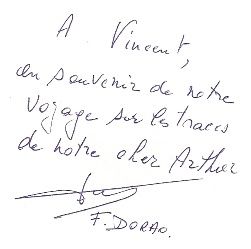 A Vincent,
en souvenir de notre
voyage sur les traces
de notre cher Arthur
F. DORAO.